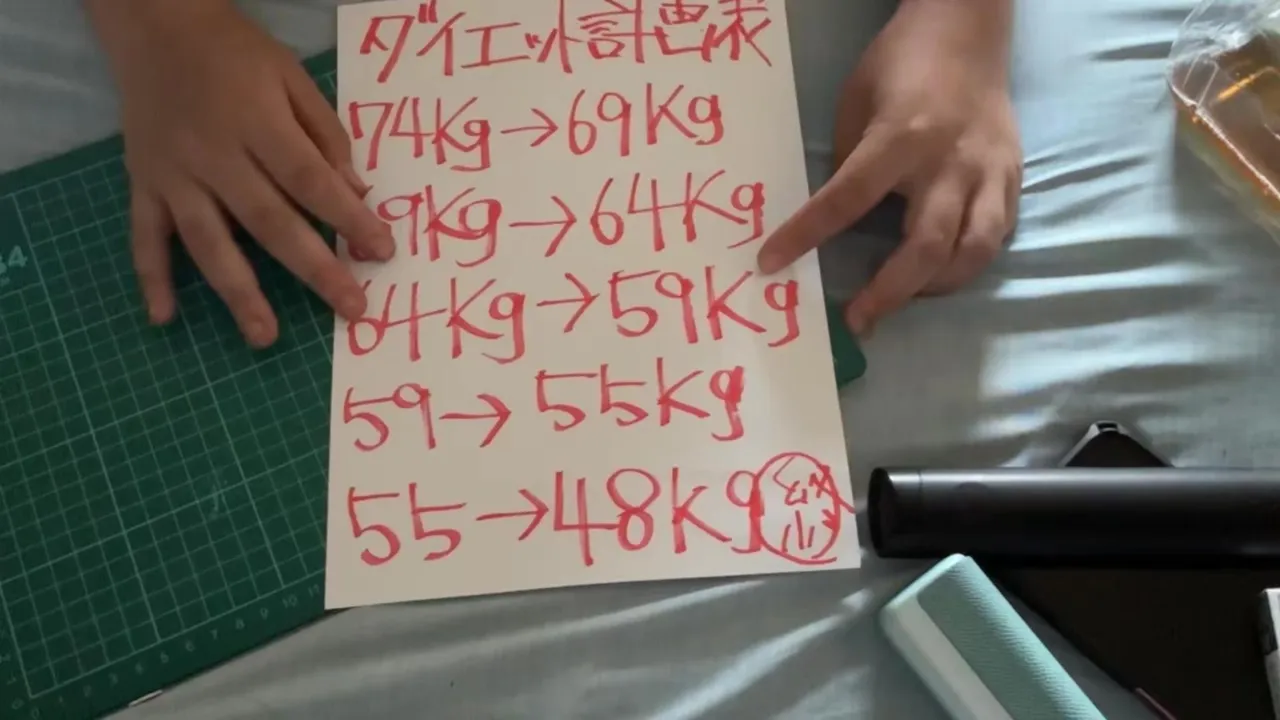 ダイエット計画表
74Kg→69Kg
69Kg→64Kg
64Kg→59Kg
59→55Kg
55→48Kg終